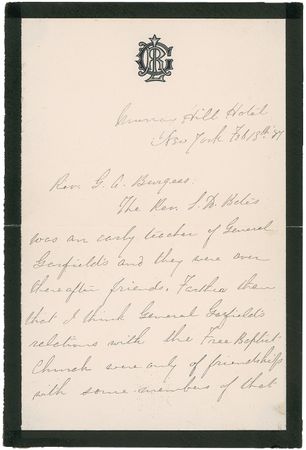 LRG
Murray Hill Hotel
New York Feb '87
Rev. G. A. Burgess:
The Rev. S. D. Bates
was an early teacher of General
Garfield's and they were ever
thereafter friends. Farther than
that I think General Garfield's
relations with the Free Baptist
Church were only of friendships
with some members of that